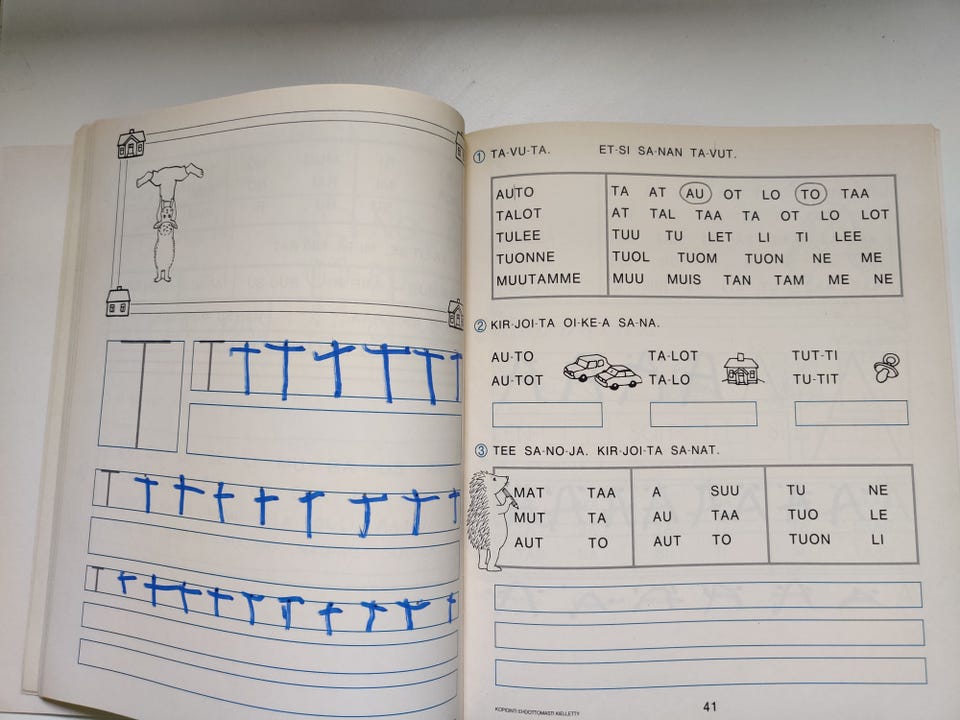 T T T T T T T
T
T T T T T T T T T
T T T T T T T T T T T
① TA-VU-TA. ET-SI SA-NAN TA-VUT.
AU|TO TA AT AU OT LO TO TAA
TALOT AT TAL TAA TA OT LO LOT
TULEE TUU TU LET LI TI LEE
TUONNE TUOL TUOM TUON NE ME
MUUTAMME MUU MUIS TAN TAM ME NE
② KIR-JOI-TA OI-KE-A SA-NA.
AU-TO TA-LOT TUT-TI
AU-TOT TA-LO TU-TIT
③ TEE SA-NO-JA. KIR-JOI-TA SA-NAT.
MAT TAA A SUU TU NE
MUT TA AU TAA TUO LE
AUT TO AUT TO TUON LI
KOPIOINTI EHDOTTOMASTI KIELLETTY
41